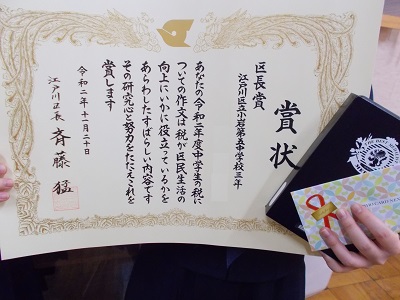 賞状
区長賞
江戸川区立小岩第五中学校三年
あなたの令和二年度中学生の税に
ついての作文は税が区民生活の
向上にいかに役立っているかを
あらわしたすばらしい内容です
その研究心と努力をたたえこれを
賞します
令和二年十一月二十日
江戸川区長 斉藤 猛